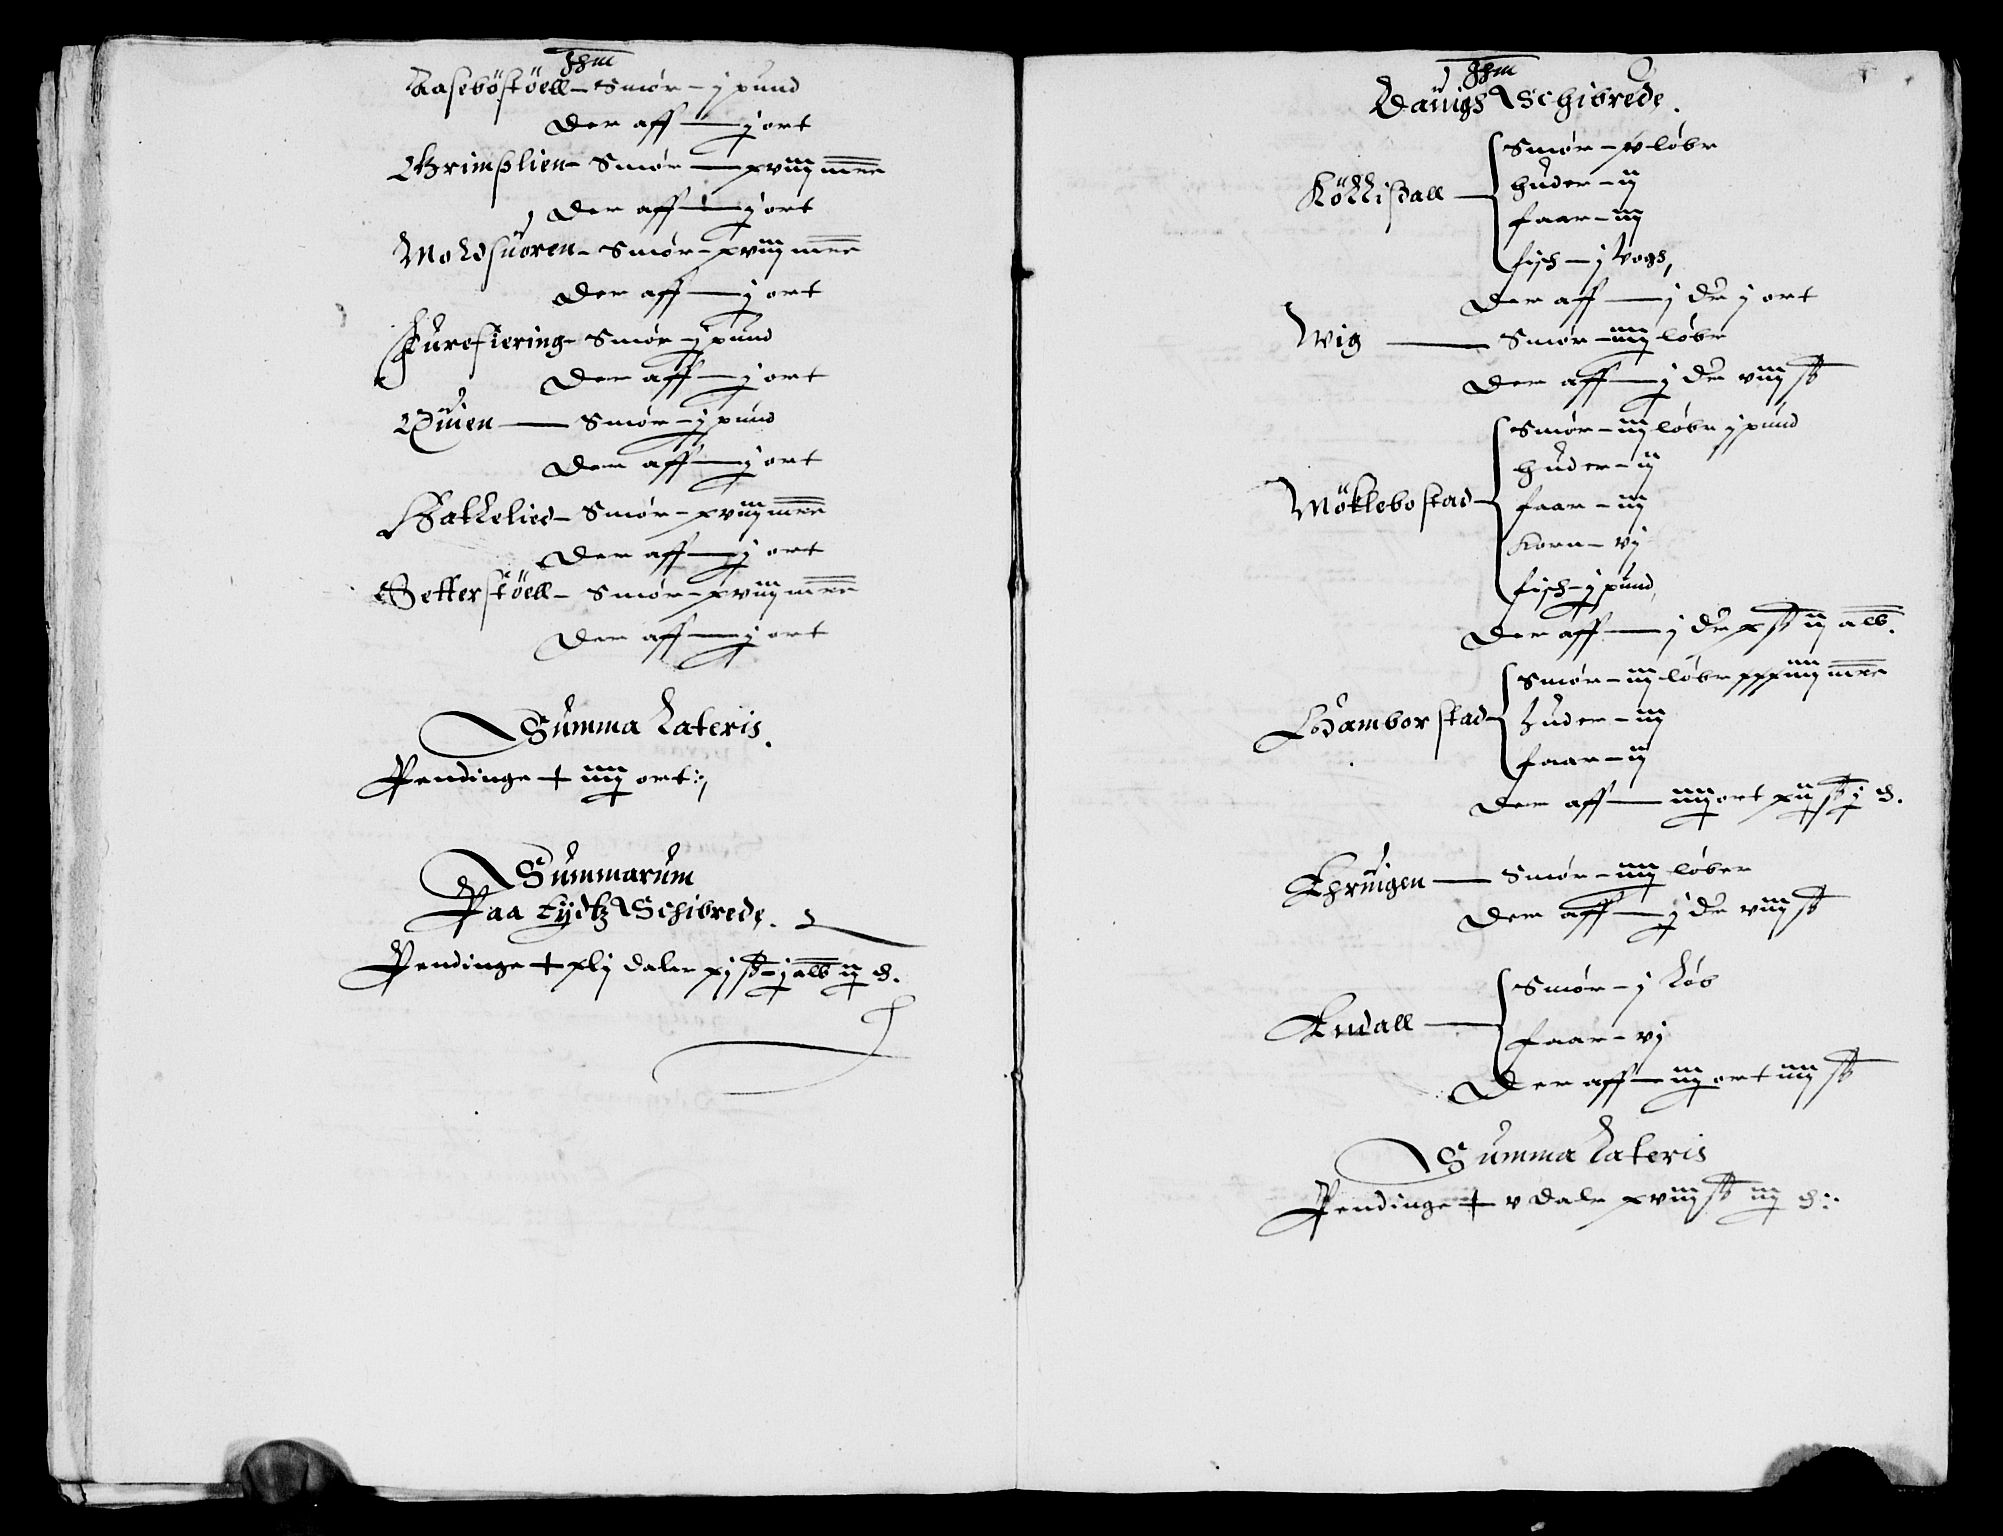 Jhm
Aaseböstöell – Smør – j pund
Der aff — j ort
Grimßlien – Smør — xviij mrr
Der aff — j ort
Moldsuoren – Smør – xviij mrr
Der aff — j ort
Furefiering – Smør – j pund
Der aff — j ort
Quien — Smør – j pund
Der aff — j ort
Backelied – Smør – xviij mrr
Der aff — j ort
Setterstöell – Smør – xviij mrr
Der aff — j ort
Summa Lateris.
Pendinge + iiij ort
Summarum
Paa Eydtz Schibrede.
Pendinge + xlj daler xj ß j alb ij d.
Jhm
Dauigs Schibrede.
Køllisdall —
Smør – xv løbr
huder – ij
faar – iij
fisch — j Vogh,
Der aff — j dr j ort
Wig — Smør – iiij løbr
Der aff — j dr viij ß
Møklebostad –
Smør – iij løbr j pund
huder – ij
faar – iij
Korn – vj
fisch – j pund,
Der aff — j dr x ß ij alb.
Hamborstad –
Smør – iij løbr xxxiiij mrr
huder – iij
faar – ij
Der aff — iiij ort xij ß j d.
Smør – iiij løber
Der aff — j dr viij ß
Endall —
Smør – j Løb
faar – vj
Der aff – iij ort iiij ß
Summa Lateris
Pendinge + v dalr xviij ß iij d